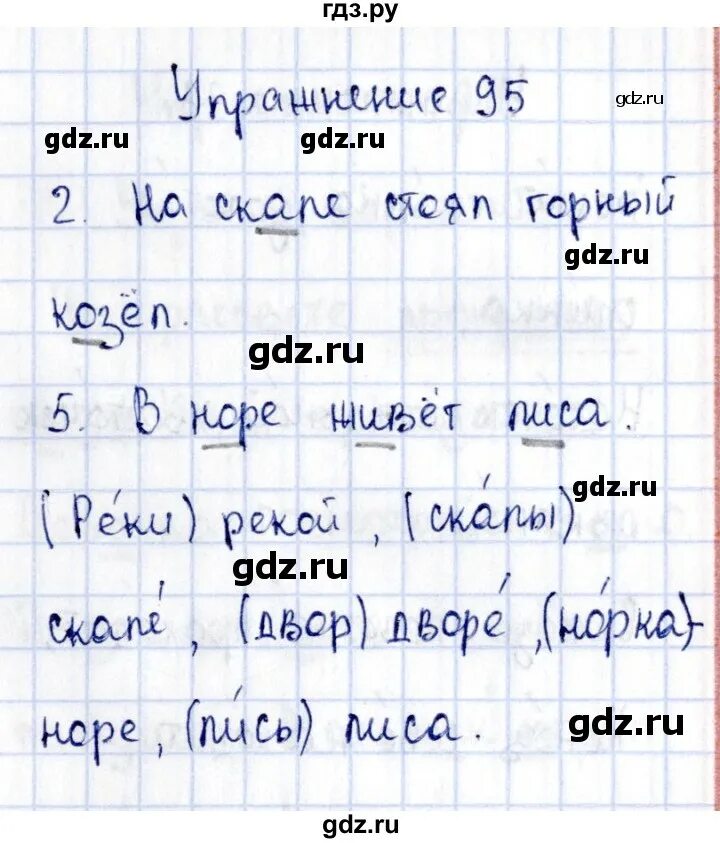 гдз.ру
Упражнение 95
gdz.ru
gdz.ru
gdz.ru
2. На скале стоял горный
gdz.ru
козёл.
gdz.ru
5. В норе живёт лиса.
gdz.ru
(Ре́ки) рекой, (ска́лы)
gdz.ru
скале́, (двор) дворе́, (но́рка)-
норе, (ли́сы) лиса.
gdz.ru
gdz.ru